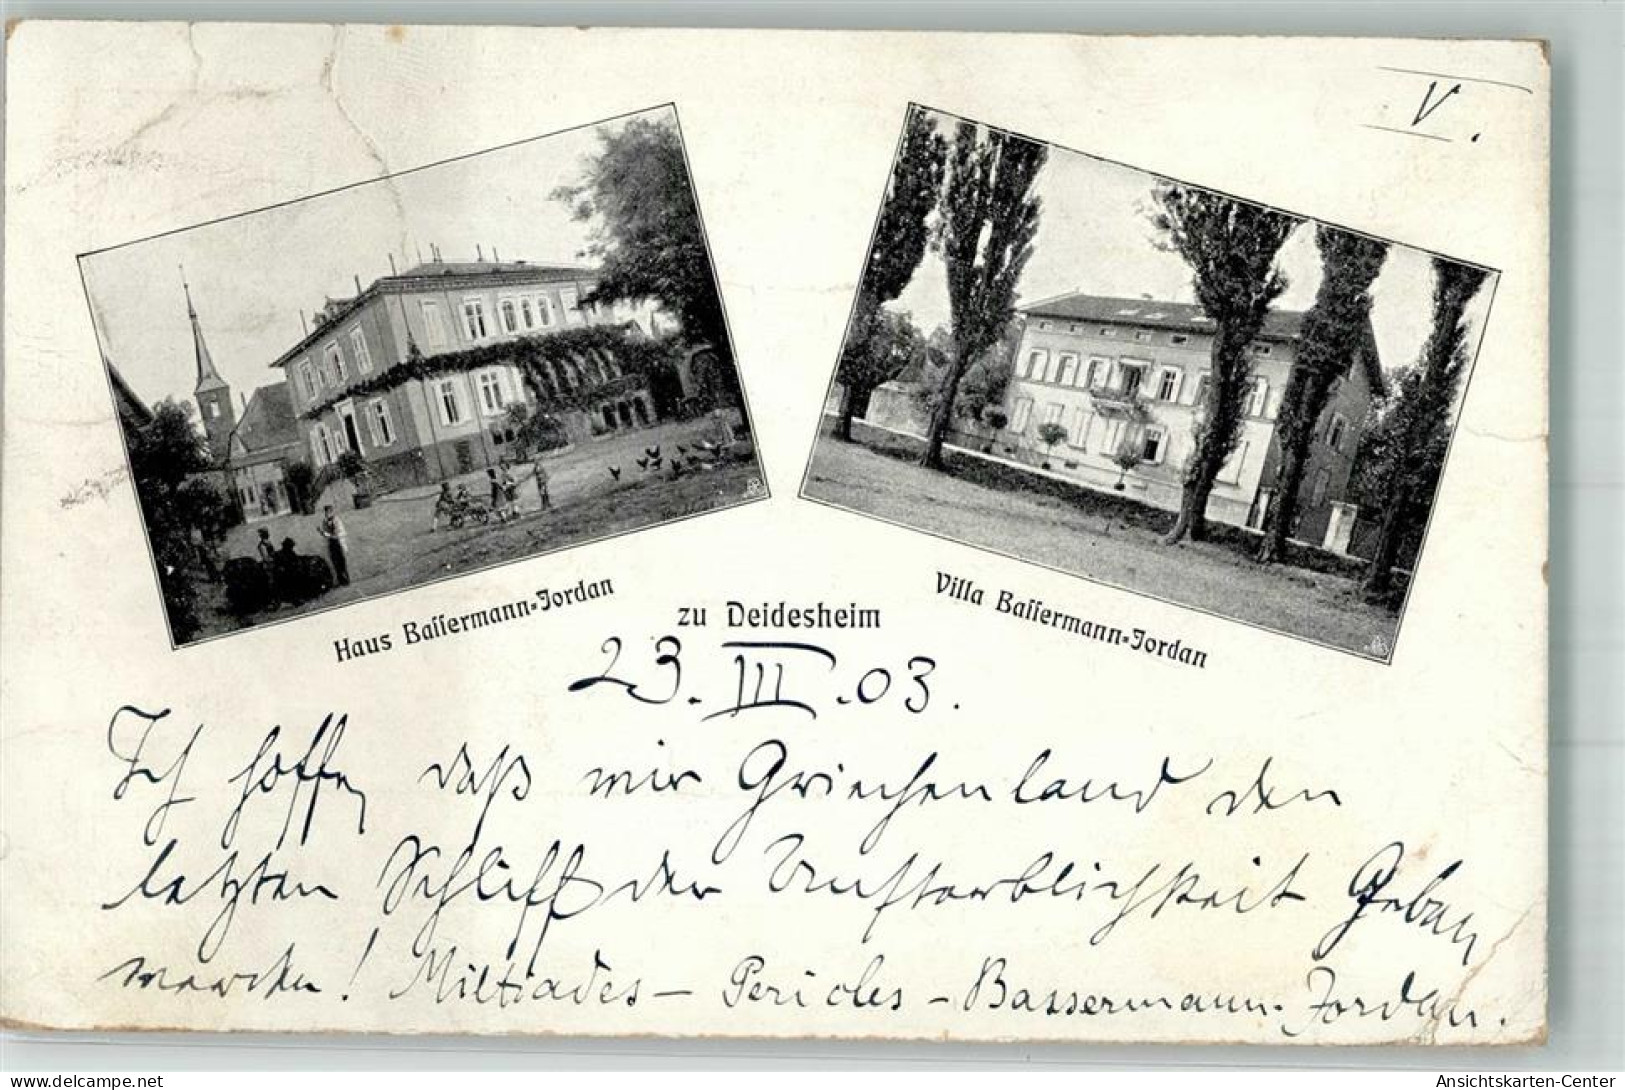 V.
Haus Bassermann-Jordan
zu Deidesheim
Villa Bassermann-Jordan
23. III. 03.
Ich hoffe, daß mir Griechenland den
letzten Schliff der Unsterblichkeit geben
werde! Miltiades - Pericles - Bassermann-Jordan.
Ansichtskarten-Center